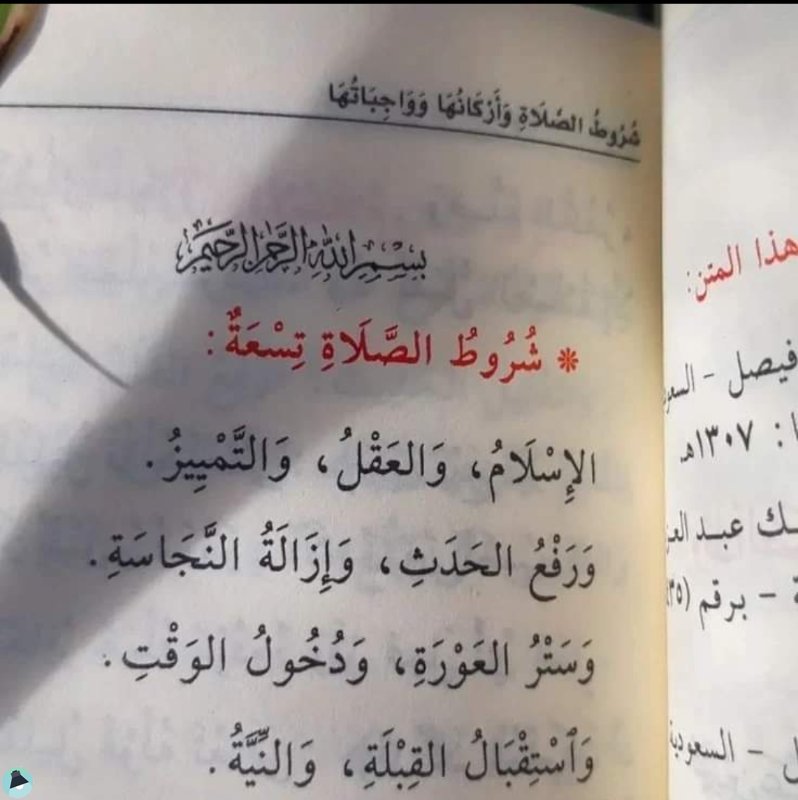 شُرُوطُ الصَّلَاةِ وَأَرْكَانُهَا وَوَاجِبَاتُهَا
بِسْمِ اللَّهِ الرَّحْمَٰنِ الرَّحِيمِ
* شُرُوطُ الصَّلَاةِ تِسْعَةٌ:
الإِسْلَامُ، وَالعَقْلُ، وَالتَّمْيِيزُ.
وَرَفْعُ الحَدَثِ، وَإِزَالَةُ النَّجَاسَةِ.
وَسَتْرُ العَوْرَةِ، وَدُخُولُ الوَقْتِ.
وَٱسْتِقْبَالُ القِبْلَةِ، وَالنِّيَّةُ.
هذا المتن:
فيصل -
: ١٣٠٧هـ
عبد
- برقم
- السعودية